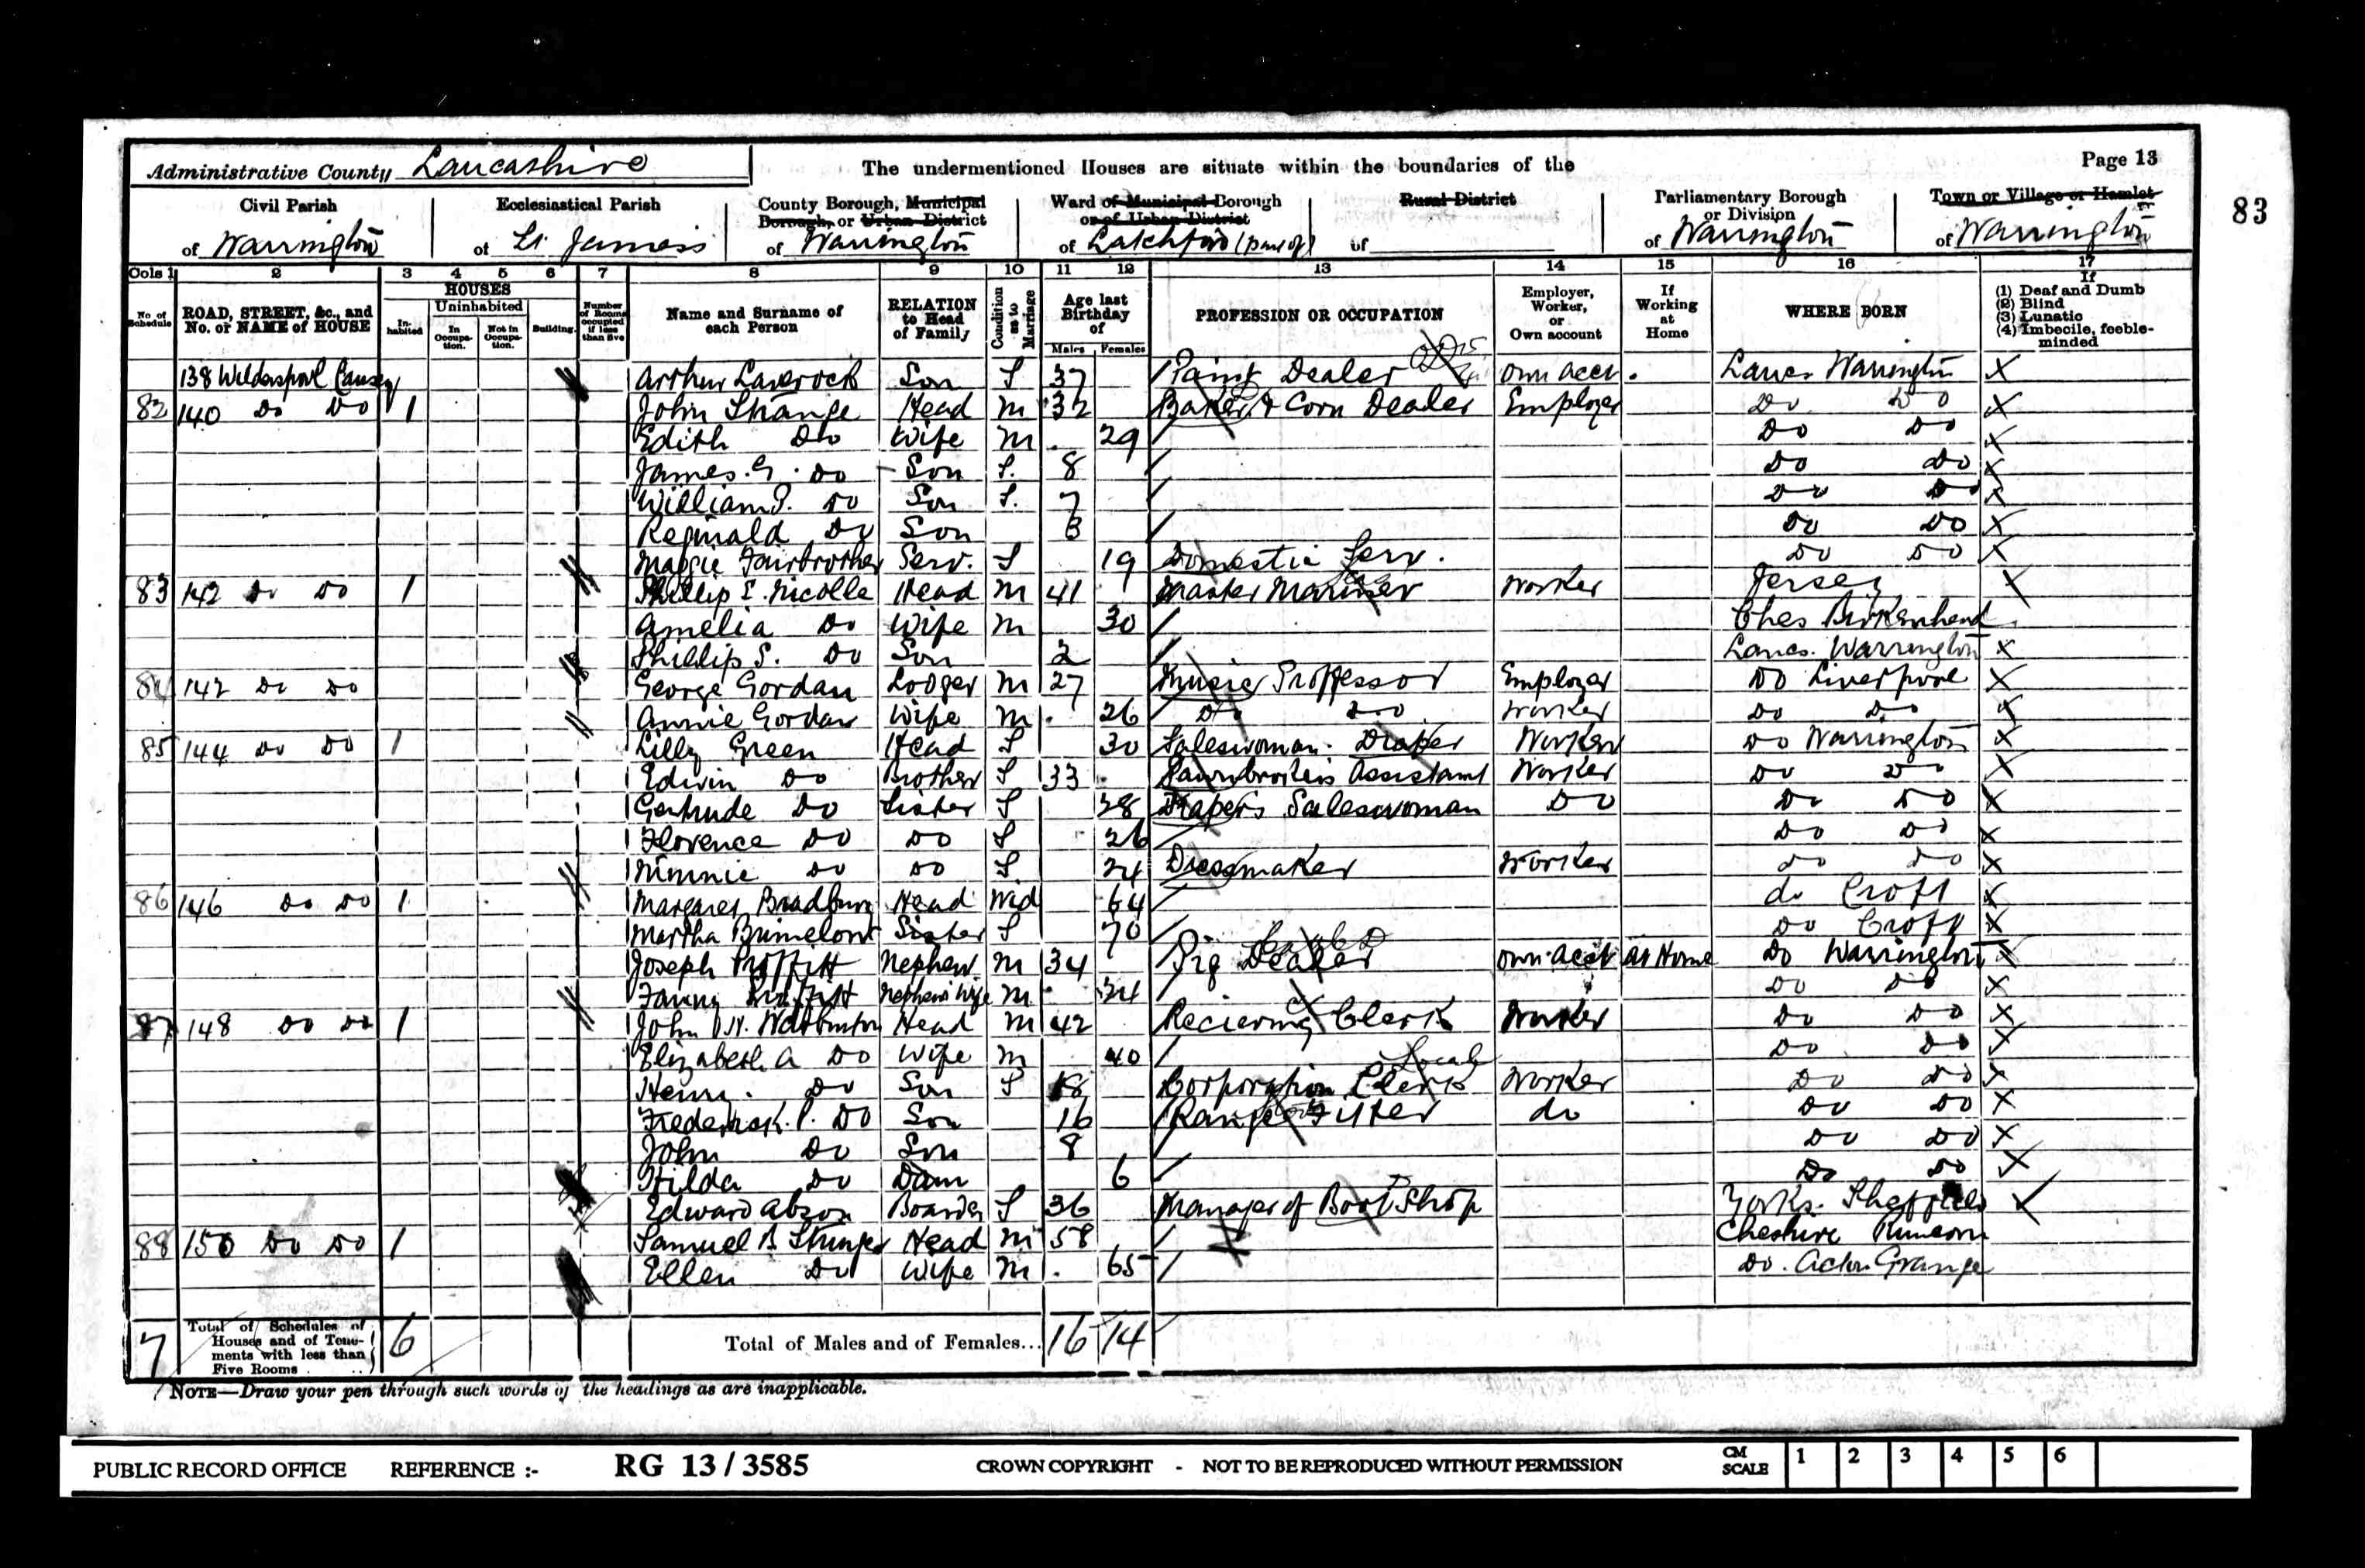 Administrative County Lancashire The undermentioned Houses are situate within the boundaries of the Page 13
83
Civil Parish of Warrington
Ecclesiastical Parish of St. James's
County Borough, Municipal Borough, or Urban District of Warrington
Ward of Municipal Borough or of Urban District of Latchford (part of)
Rural District of
Parliamentary Borough or Division of Warrington
Town or Village or Hamlet of Warrington
Cols 1 2 3 4 5 6 7 8 9 10 11 12 13 14 15 16 17
No. of Schedule
ROAD, STREET, &c., and No. or NAME of HOUSE
HOUSES
Inhabited
Uninhabited
In Occupation.
Not in Occupation.
Building.
Number of Rooms occupied if less than five
Name and Surname of each Person
RELATION to Head of Family
Condition as to Marriage
Age last Birthday of
Males Females
PROFESSION OR OCCUPATION
Employer, Worker, or Own account
If Working at Home
WHERE BORN
If
(1) Deaf and Dumb
(2) Blind
(3) Lunatic
(4) Imbecile, feeble-minded
138 Wilderspool Causey Arthur Laverock Son S 37 Dealer own acct. Lancs. Warrington
82 140 Do Do 1 John Strange Head M 32 Baker & Corn Dealer Employer Do Do
Edith Do Wife M 29 Do Do
James. G. Do Son S. 8 Do Do
William P. Do Son S. 7 Do Do
Reginald Do Son 3 Do Do
Maggie Fairbrother Serv. S 19 Domestic Serv. Do Do
83 142 Do Do 1 Phillip S. Nicolle Head M 41 Master Mariner Worker Jersey
Amelia Do Wife M 30 Ches Birkenhead
Phillip S. Do Son 2 Lancs. Warrington
84 142 Do Do George Gordan Lodger M 27 Music Proffessor Employer Do Liverpool
Annie Gordan Wife M 26 Do Do Worker Do Do
85 144 Do Do 1 Lilly Green Head S 30 Saleswoman. Draper Worker Do Warrington
Edwin Do Brother S 33 Pawnbrokers Assistant Worker Do Do
Gertrude Do Sister S 28 Draper's Saleswoman Do Do Do
Florence Do Do S 26 Do Do
Minnie Do Do S 24 Dressmaker Worker Do Do
86 146 Do Do 1 Margaret Bradbury Head Wid 64 do Croft
Martha Brimelow Sister S 70 Do Croft
Joseph Proffitt Nephew M 34 Pig Dealer own acct at Home Do Warrington
Fanny Proffitt Nephews Wife M 34 Do Do
87 148 Do Do 1 John W. Warburton Head M 42 Recieving Clerk Worker Do Do
Elizabeth A Do Wife M 40 Do Do
Local
Henry. Do Son S 18 Corporation Clerk Worker Do Do
Frederick. P. Do Son 16 Range Fitter do Do Do
John Do Son 8 Do Do
Hilda Do Daur 6 Do Do
Edward Abson Boarder S 36 Manager of Boot Shop Yorks. Sheffield
88 150 Do Do 1 Samuel B Head M 58 Cheshire Runcorn
Ellen Do Wife M 65 Do. Acton Grange
7 Total of Schedules of Houses and of Tenements with less than Five Rooms 6 Total of Males and of Females... 16 14
NOTE—Draw your pen through such words of the headings as are inapplicable.
PUBLIC RECORD OFFICE REFERENCE :- RG 13 / 3585 CROWN COPYRIGHT - NOT TO BE REPRODUCED WITHOUT PERMISSION CM SCALE 1 2 3 4 5 6